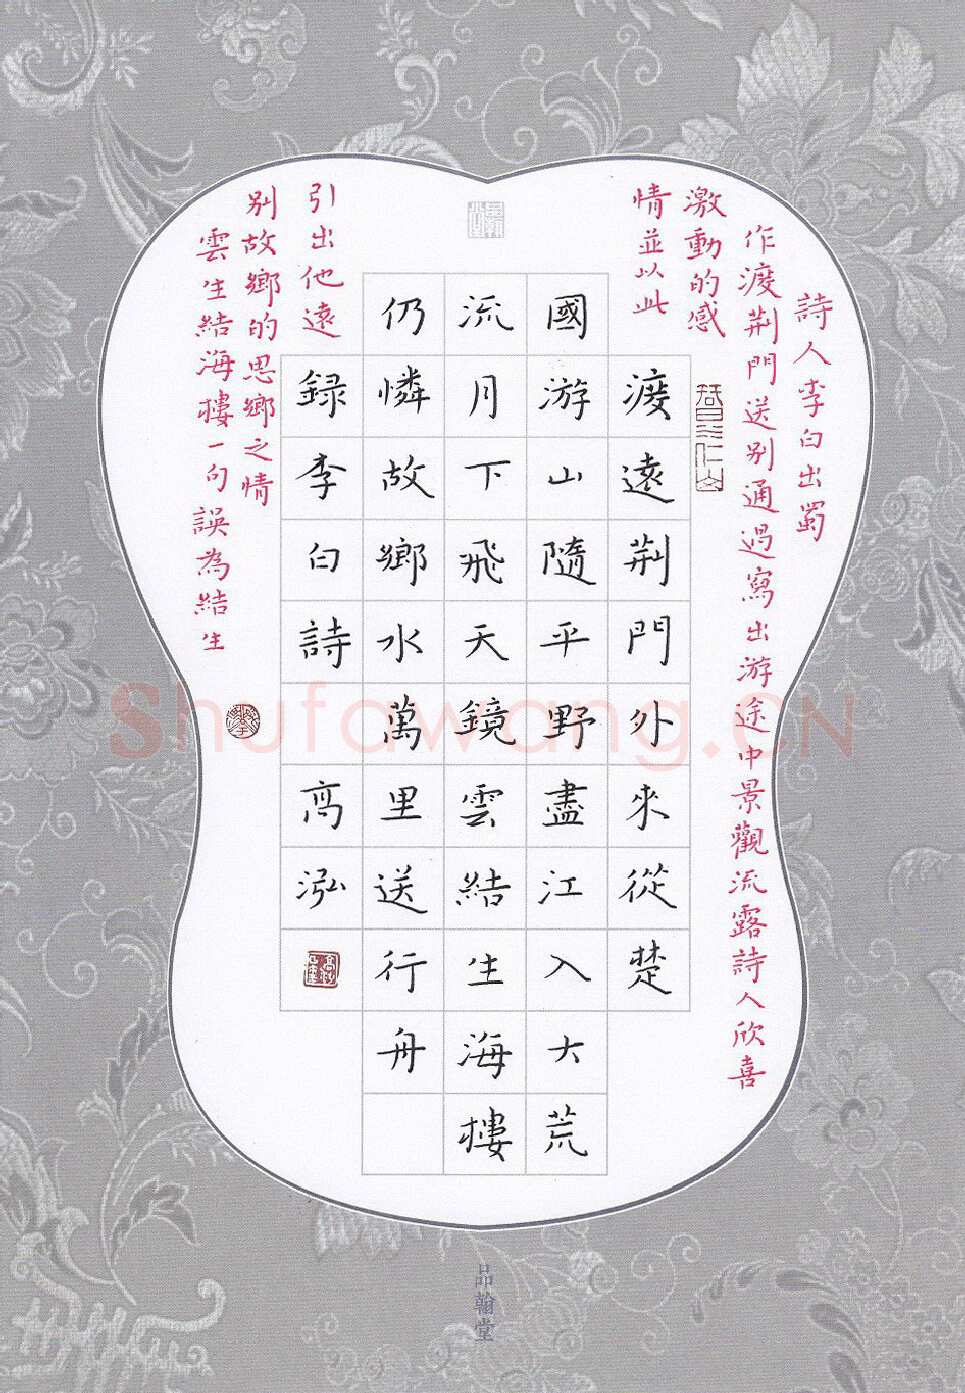 詩人李白出蜀
作渡荆門送别通過寫出游途中景觀流露詩人欣喜
激動的感
情並以此
引出他遠
别故鄉的思鄉之情
雲生結海樓一句誤為結生
渡遠荆門外來從楚
國游山隨平野盡江入大荒
流月下飛天鏡雲結生海樓
仍憐故鄉水萬里送行舟
録李白詩 高泓
品翰堂
Shufawang.CN